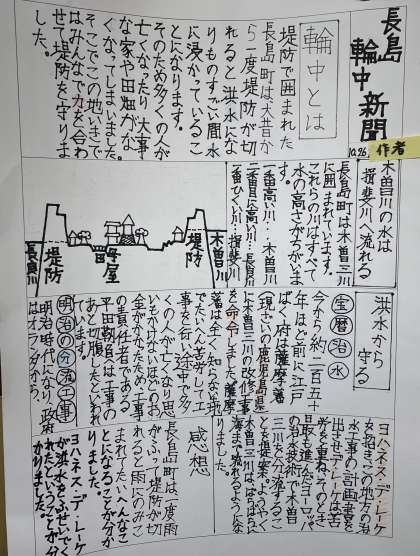 長島
輪中
新聞
10.26
作者
輪中とは
堤防で囲まれた
長島町は大昔か
ら一度堤防が切
れると洪水にな
りものすごい間水
に浸かっているこ
とになります。
そのため多くの人が
亡くなったり大事
な家や田畑がな
くなってしまいました。
そこでこの地いきで
はみんなで力を合わ
せて堤防を守りま
した。
木曽川の水は
揖斐川へ流れる
長島町は木曽三川
に囲まれています。
これらの川はすべて
水の高さがちがいま
す。
一番高い川…木曽川
二番目に高い川…長良川
一番ひくい川…揖斐川
木曽川
堤防
母屋
田
堤防
長良川
洪水から
守る
宝暦治水
今から約二百五十
年ほど前に江戸
ばく府は薩摩藩
(現ざいの鹿児島県)
に木曽三川の改修工事
を命令しました。薩摩
藩は全く知らない地
でたいへん苦労して工
事を行い途中で多
くの人が亡くなり思
いもかけないほどのお
金がかかったため工事
の責任者である
平田靱負は工事の
あと切腹したといわれ
ています。
明治の分流工事
明治時代になり、政府
はオランダから、
ヨハネス・デ・レーケ
を招きこの地方の治
水工事の計画書を
出させデ・レーケは苦
労を重ねそのとき
最も進んだヨーロッパ
の治水技術で木曽
三川を分流するこ
とを提案。ようやく
木曽三川はばらばらに
海まで流れるようにな
りました。
感想
長島町は一度雨
がふって堤防が切
れると雨にのみこ
まれてたいへんなこ
とになることが分か
りました。
ヨハネス・デ・レーケ
が洪水をふせいでく
れたということが分
かりました。